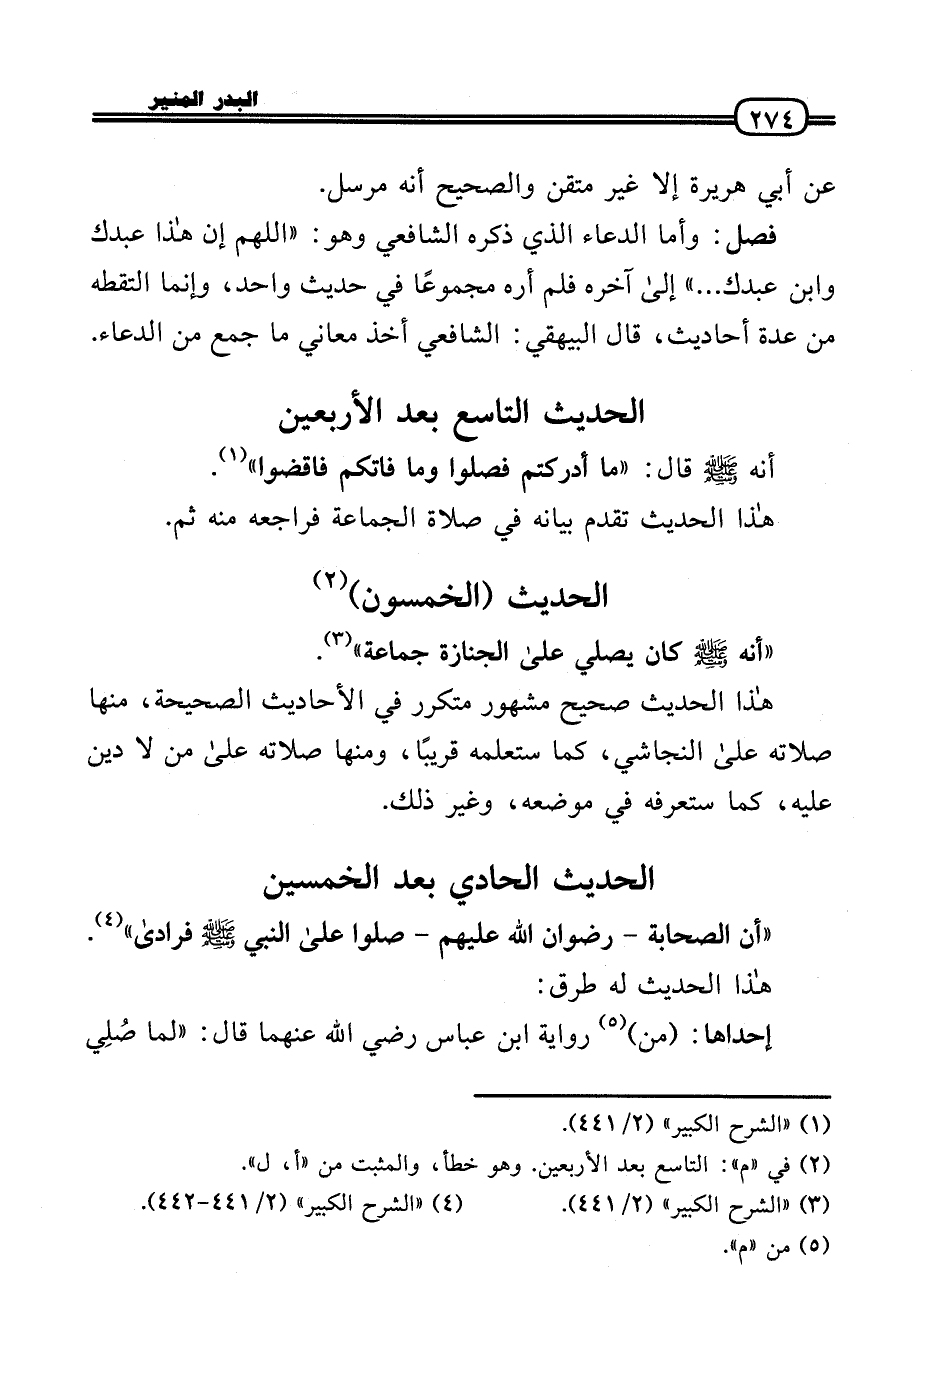 البدر المنير
٢٧٤
عن أبي هريرة إلا غير متقن والصحيح أنه مرسل.
فصل: وأما الدعاء الذي ذكره الشافعي وهو: «اللهم إن هٰذا عبدك
وابن عبدك...» إلىٰ آخره فلم أره مجموعًا في حديث واحد، وإنما التقطه
من عدة أحاديث، قال البيهقي: الشافعي أخذ معاني ما جمع من الدعاء.
الحديث التاسع بعد الأربعين
أنه ﷺ قال: «ما أدركتم فصلوا وما فاتكم فاقضوا»(١).
هٰذا الحديث تقدم بيانه في صلاة الجماعة فراجعه منه ثم.
الحديث (الخمسون)(٢)
«أنه ﷺ كان يصلي علىٰ الجنازة جماعة»(٣).
هٰذا الحديث صحيح مشهور متكرر في الأحاديث الصحيحة، منها
صلاته علىٰ النجاشي، كما ستعلمه قريبًا، ومنها صلاته علىٰ من لا دين
عليه، كما ستعرفه في موضعه، وغير ذلك.
الحديث الحادي بعد الخمسين
«أن الصحابة - رضوان الله عليهم - صلوا علىٰ النبي ﷺ فرادىٰ»(٤).
هٰذا الحديث له طرق:
إحداها: (من)(٥) رواية ابن عباس رضي الله عنهما قال: «لما صُلِي
(١) «الشرح الكبير» (٢/ ٤٤١).
(٢) في «م»: التاسع بعد الأربعين. وهو خطأ، والمثبت من «أ، ل».
(٣) «الشرح الكبير» (٢/ ٤٤١). (٤) «الشرح الكبير» (٢/ ٤٤١-٤٤٢).
(٥) من «م».